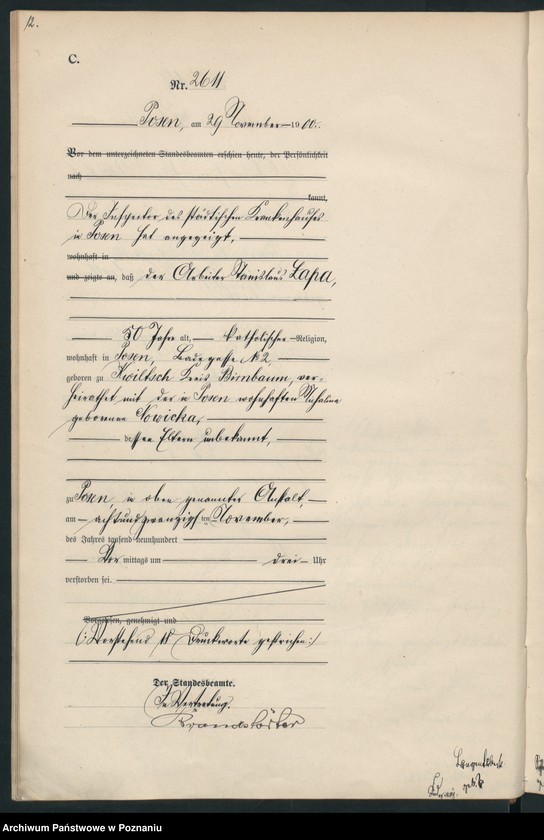 12.
C.
Nr. 2611
Posen, am 29 November 1900.
Vor dem unterzeichneten Standesbeamten erschien heute, der Persönlichkeit
nach
kannt,
Der Inspector des städtischen Krankenhauses
in Posen hat angezeigt,
wohnhaft in
und zeigte an, daß der Arbeiter Stanislaus Lapa,
50 Jahre alt, katholischer Religion,
wohnhaft in Posen, № 2,
geboren zu Kwiltsch Kreis Birnbaum, ver-
heirathet mit der in Posen wohnhaften
geborenen Nowicka,
dessen Eltern unbekannt,
zu Posen, in oben genannter Anstalt,
am achtundzwanzigsten November,
des Jahres tausend neunhundert
Vor mittags um drei Uhr
verstorben sei.
Vorgelesen, genehmigt und
(: Vorstehend Druckworte gestrichen :)
Der Standesbeamte.
In Vertretung.
Archiwum Państwowe w Poznaniu